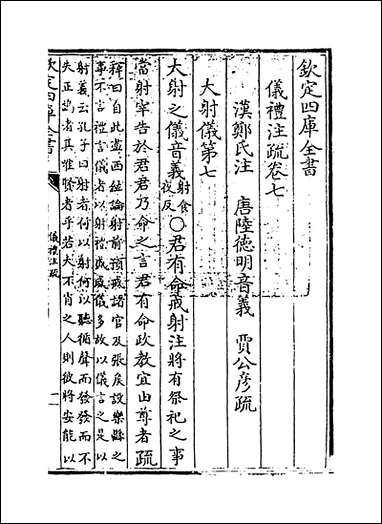 欽定四庫全書
儀禮注疏卷七
漢鄭氏注　唐陸德明音義　賈公彥疏
大射儀第七
大射之儀音義射食夜反〇君有命戒射注將有祭祀之事
當射宰告於君君乃命之言君有命政教宜由尊者疏
釋曰自此盡西紘論射前預戒諸官及張侯設樂縣之
事不言禮言儀者以射禮盛威儀多故以儀言之是以
射義云孔子曰射者何以射何以聽循聲而發發而不
失正鵠者其唯賢者乎若夫不肖之人則彼將安能以
欽定四庫全書
儀禮注疏
一